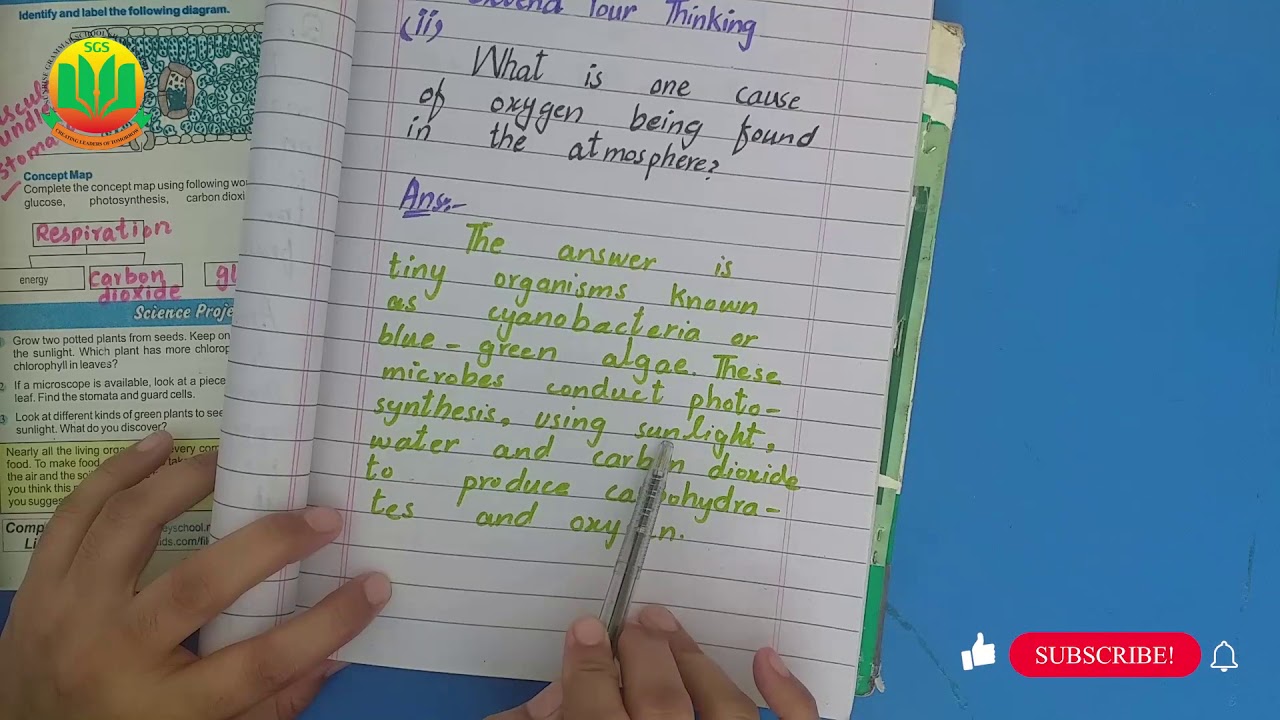 Identify and label the following diagram.
SGS
CREATING LEADERS OF TOMORROW
Concept Map
Complete the concept map using following
glucose, photosynthesis, carbon
Respiration
energy
carbon
dioxide
Science
Grow two potted plants from seeds. Keep
the sunlight. Which plant has more
chlorophyll in leaves?
If a microscope is available, look at a piece
leaf. Find the stomata and guard cells.
Look at different kinds of green plants to
sunlight. What do you discover?
Nearly all the living
food. To make food
the air and the
you think this
you
Your Thinking
(ii)
What is one cause
of oxygen being found
in the atmosphere?
Ans:-
The answer is
tiny organisms known
as cyanobacteria or
blue-green algae. These
microbes conduct photo-
synthesis, using sunlight,
water and carbon dioxide
to produce carbohydra-
tes and oxygen.
SUBSCRIBE!